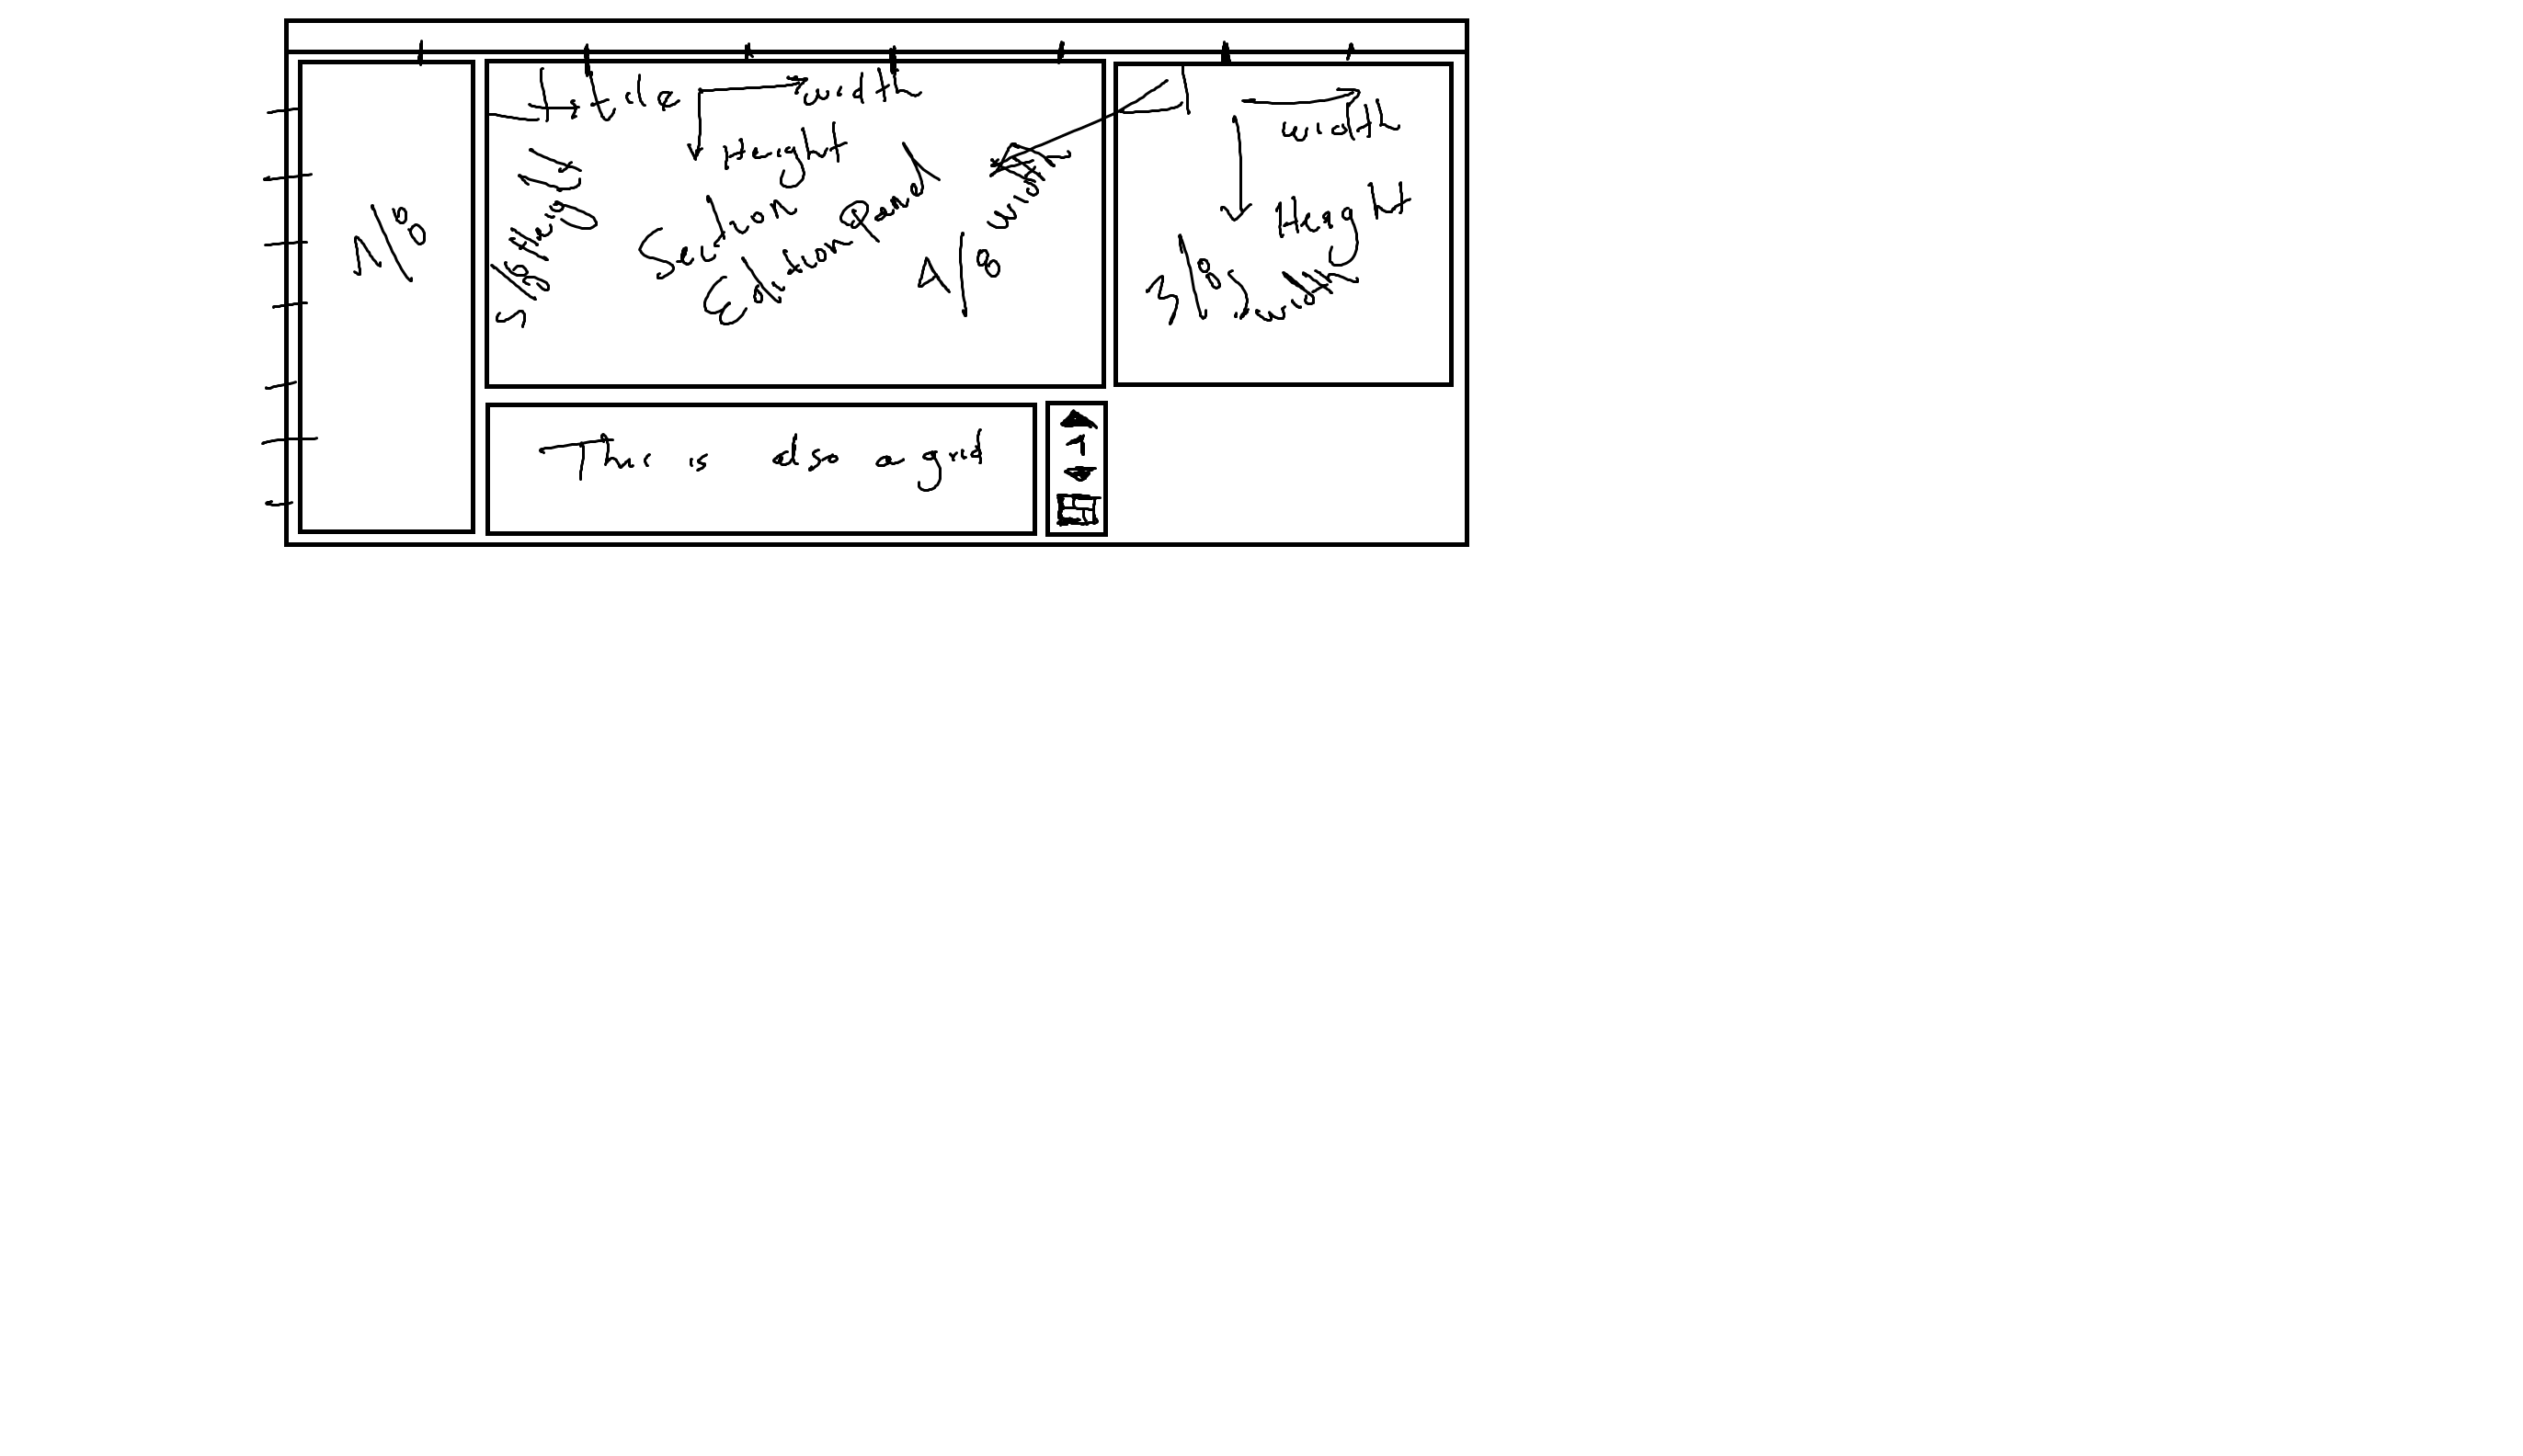 1 tile
width
Height
5/8 Height
Section
Edition Panel
4/8 width
1/8
width
Height
3/8 width
This is also a grid
1